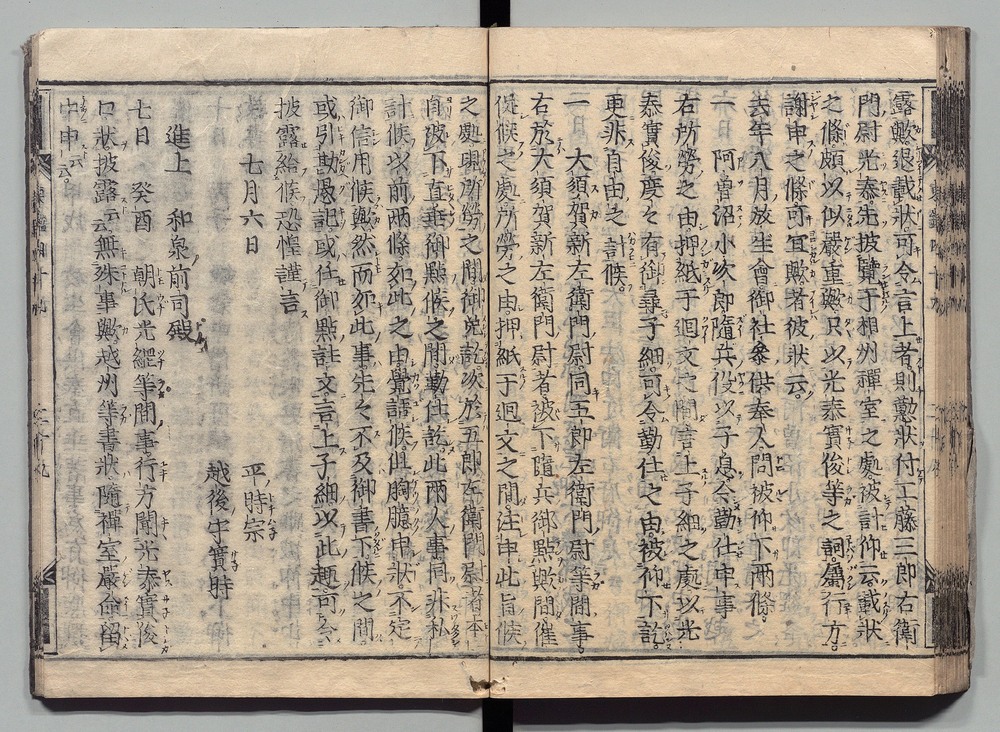 露歟退載状可令言上者則懃状付工藤三郎右衛
門尉光泰先披覽于相州禪室之處被計仰云載状
之條頗以似嚴重歟只以光泰實俊等之詞属行方
謝申之條可宜歟者彼状云
去年八月放生會御社参供奉人問被仰下兩條
一阿曽沼小次郎隨兵役以子息令勤仕申事
右所勞之由押紙于廻文之間言上子細之處以光
泰實俊度々有御尋子細可令勤仕之由被仰下訖
更非自由之計候
一大須賀新左衛門尉同五郎左衛門尉等間事
右於大須賀新左衛門尉者被下隨兵御點歟間催
促候之處所勞之由押紙于廻文之間注申此旨候
之處現所勞之間御免訖次於五郎左衛門尉者本
自被下直垂御點候之間勤仕訖此兩人事同非私
計候以前兩條如此之由覺語候但胸臆申状不定
御信用候歟然而如此事先々不及御書下候之間
或引勘愚記或任御點註文言上子細以此趣可令
披露給候恐惶謹言
七月六日
平時宗
越後守實時
進上 和泉前司殿
七日 癸酉 朝氏光經等間事行方聞光泰實俊
口状披露云無殊事歟越州等書状隨禪室嚴命留
中申云云